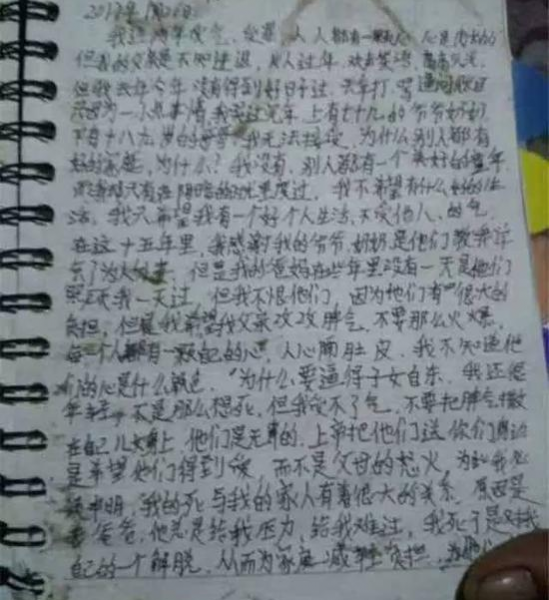 2017年1月26日
我这两年受气、受冤，人人都有一颗心，心是肉长的
但我的父亲是不知悲退，别人过年，欢声笑语，
但我去年今年没有得到好日子过，天天打，骂
只因为一点小事情，我哭过几年，上有七十几的爷爷奶奶
下有十八九岁的哥哥，我无法接受，为什么别人都有
好的家庭，为什么？我没有，别人都有一个美好的童年
而我却只有在阴暗的夜里度过，我不希望有什么好的生
活，我只希望我有一个好个人生活，不受他人的气
在这十五年里，我感谢我的爷爷，奶奶，是他们教我许
多了为人的事，但是我的爸妈在些年里没有一天是他们
照顾我一天过，但我不恨他们，因为他们有很大的
负担，但是我希望我父亲改改脾气，不要那么火爆，
每一个人都有一颗自己的心，人心隔肚皮，我不知道他
们的心是什么颜色，"为什么要逼得子女自杀，我还很
年轻，不是那么想死，但我受不了气，不要把脾气撒
在自己儿女身上，他们是无辜的，上帝把他们送你们身边
是希望他们得到爱，而不是父母的怒火，为此我必
须申明，我的死与我的家人有着很大的关系，原因是
爸爸，他总是给我压力，给我难过，我死了是对我
自己的一个解脱，从而为家庭减轻负担，